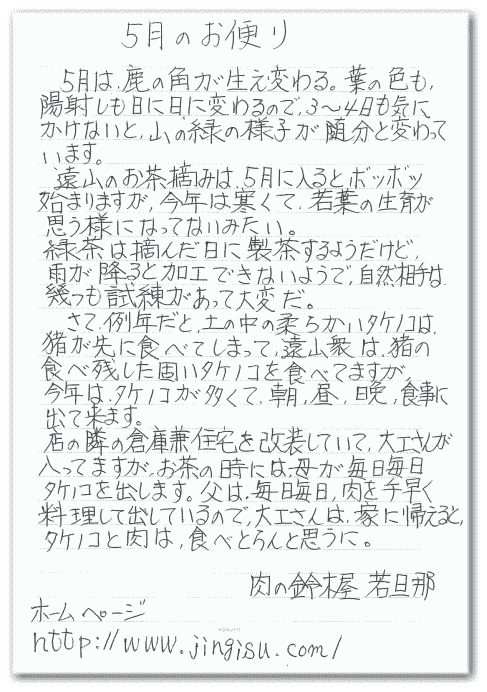 5月のお便り
5月は、鹿の角が生え変わる。葉の色も、
陽射しも日に日に変わるので、3〜4日も気に
かけないと、山の緑の様子が随分と変わって
います。
遠山のお茶摘みは、5月に入るとボツボツ
始まりますが、今年は寒くて、若葉の生育が
思う様になってないみたい。
緑茶は摘んだ日に製茶するようだけど、
雨が降ると加工できないようで、自然相手は
幾つも試練があって大変だ。
さて、例年だと、土の中の柔らかいタケノコは、
猪が先に食べてしまって、遠山衆は、猪の
食べ残した固いタケノコを食べてますが、
今年は、タケノコが多くて、朝、昼、晩、食事に
出て来ます。
店の隣の倉庫兼住宅を改装していて、大工さんが
入ってますが、お茶の時には、母が毎日毎日
タケノコを出します。父は、毎日毎日、肉を手早く
料理して出しているので、大工さんは、家に帰えると、
タケノコと肉は、食べとらんと思うに。
肉の鈴木屋 若旦那
ホームページ
http://www.jingisu.com/